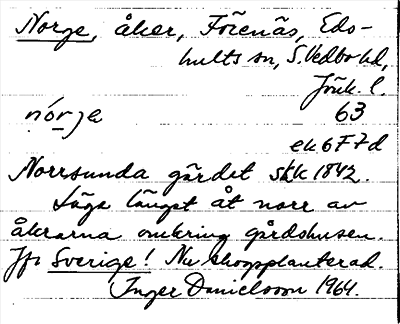 Norge, åker, Förenäs, Eds-
hults sn, S. Vedbo hd,
Jönk. l.
nórja 63
ek 6F7d
Norrsunda gärdet skk 1842.
Låga längst åt norr av
åkrarna omkring gårdshusen.
Jfr Sverige! Nu skogsplanterad.
Inger Danielsson 1964.